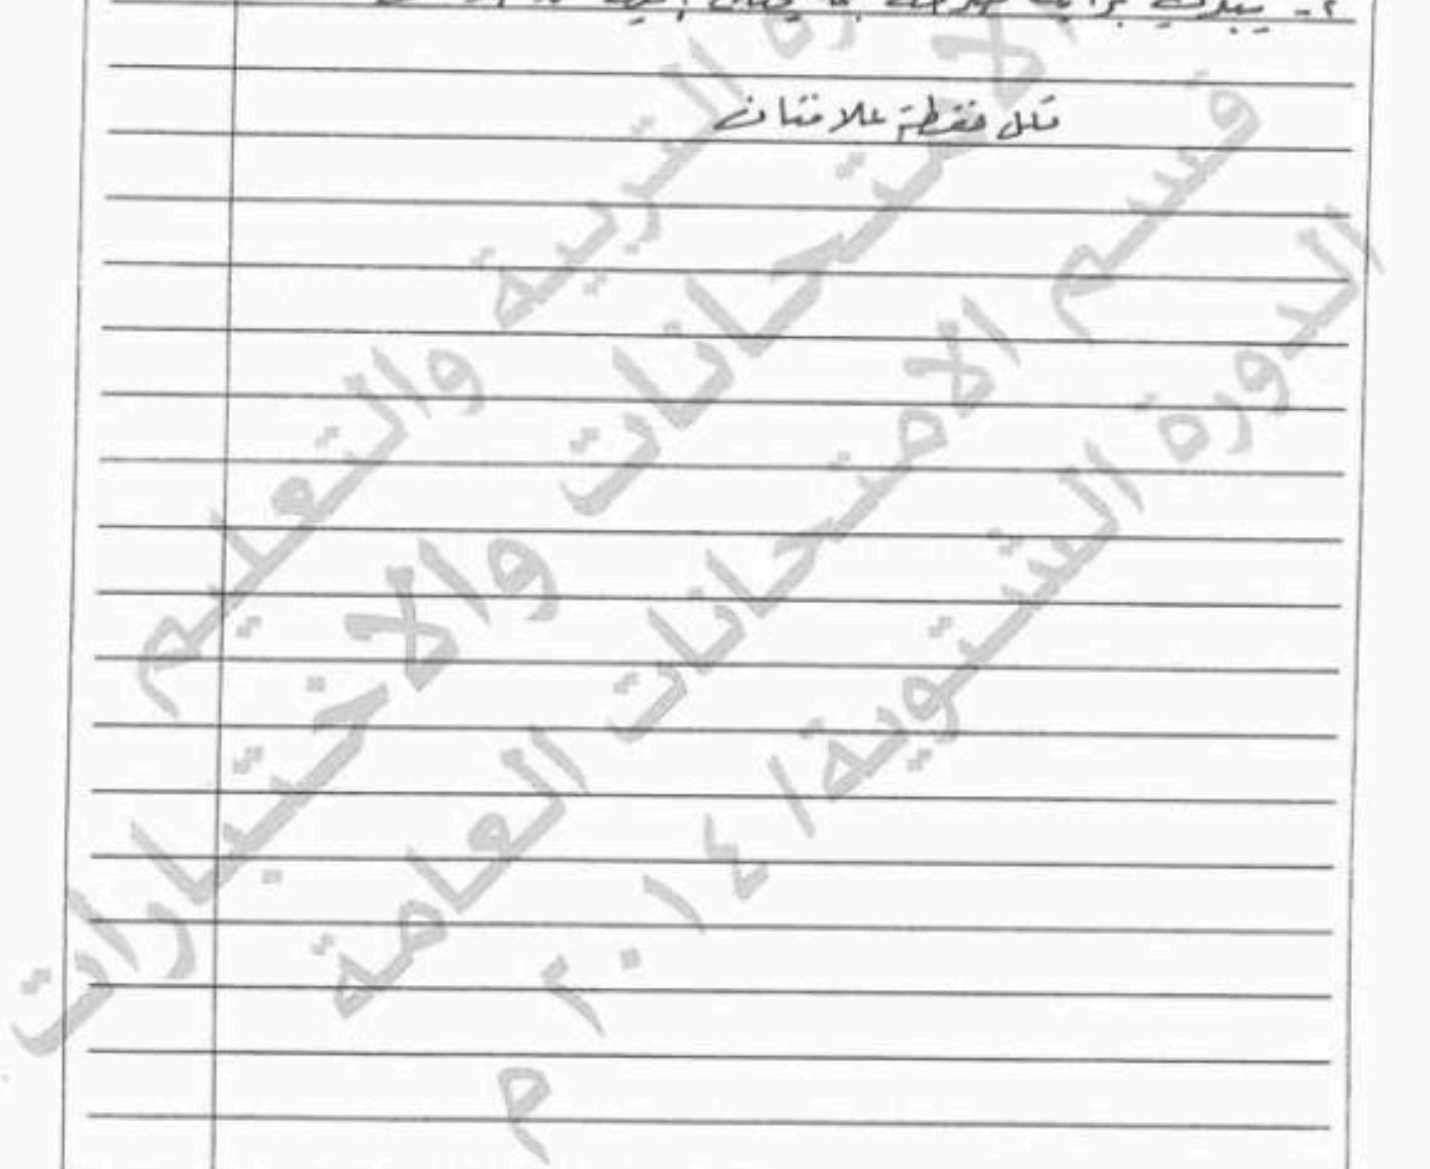 ٢-
لكل نقطة علامتان
التربية والتعليم
الامتحانات والاختبارات
قسم الامتحانات العامة
الدورة الشتوية / ٢٠١٤
م